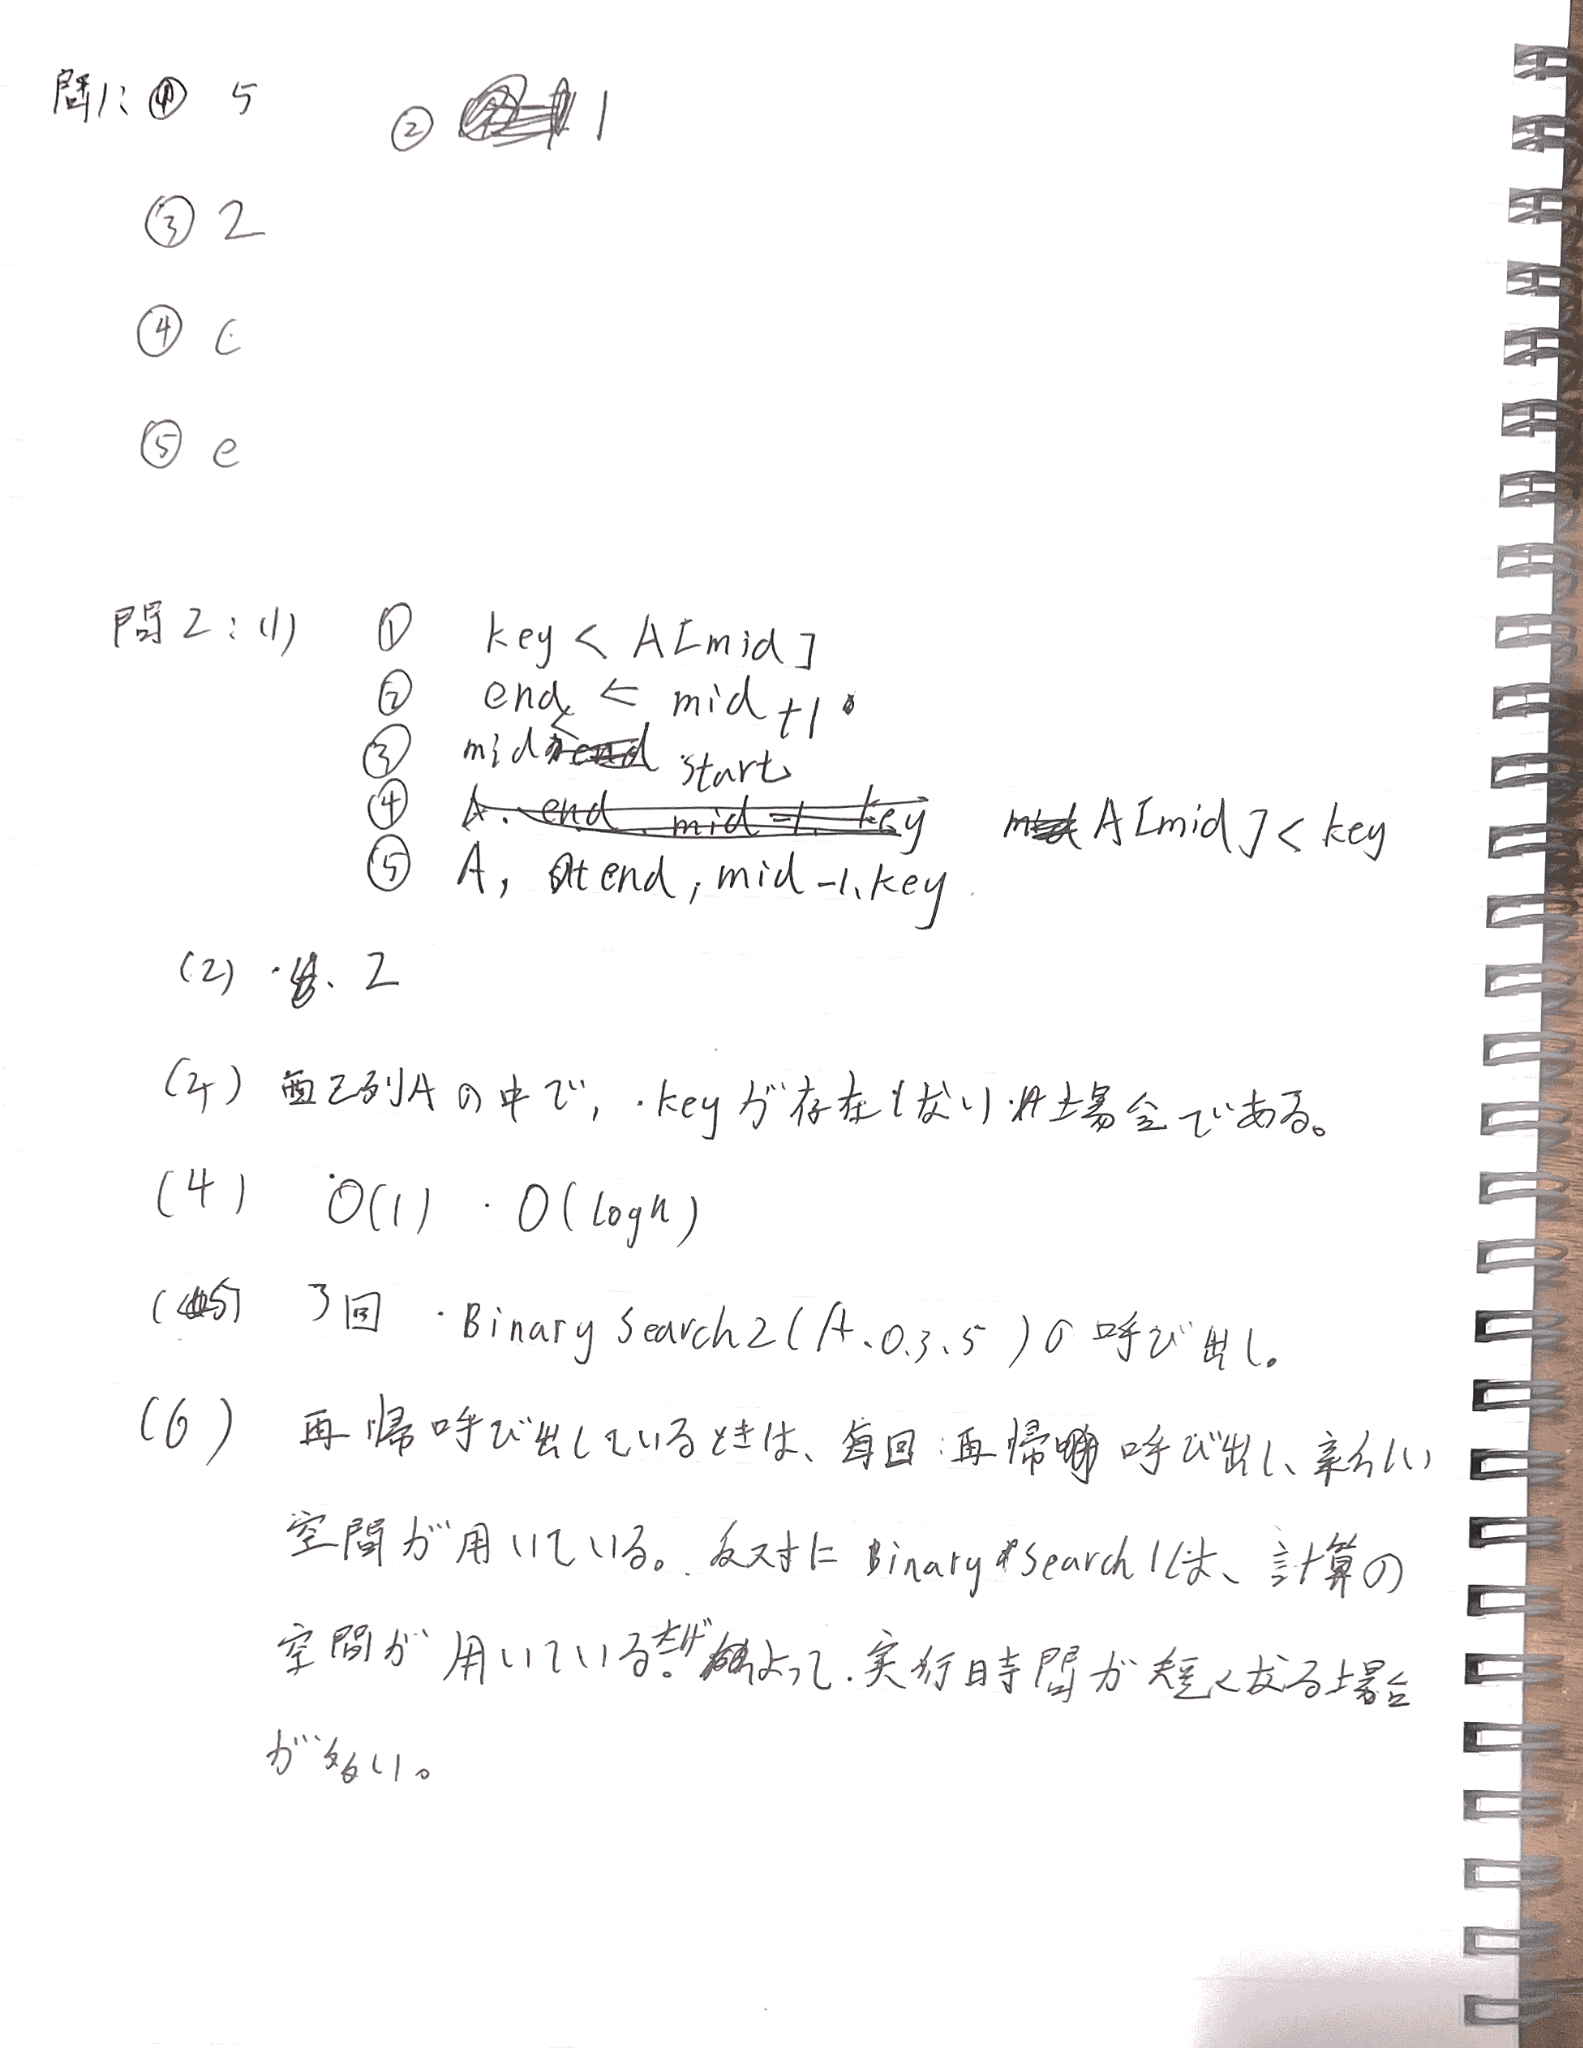 問1: ① 5 ② 1
③ 2
④ c
⑤ e
問2: (1) ① key < A[mid]
② end ← mid +1
③ mid < start
④ A[mid] < key
⑤ A, end, mid-1, key
(2) 2
配列Aの中で, keyが存在しない場合である。
(4) O(1) O(logn)
(5) 3回 Binary Search2(A、0、3、5)の呼び出し。
(6) 再帰呼び出しているときは、毎回再帰呼び出し、新しい
空間が用いている。反対に Binary Search1は、計算の
空間が用いているだけ。よって、実行時間が短くなる場合
が多い。